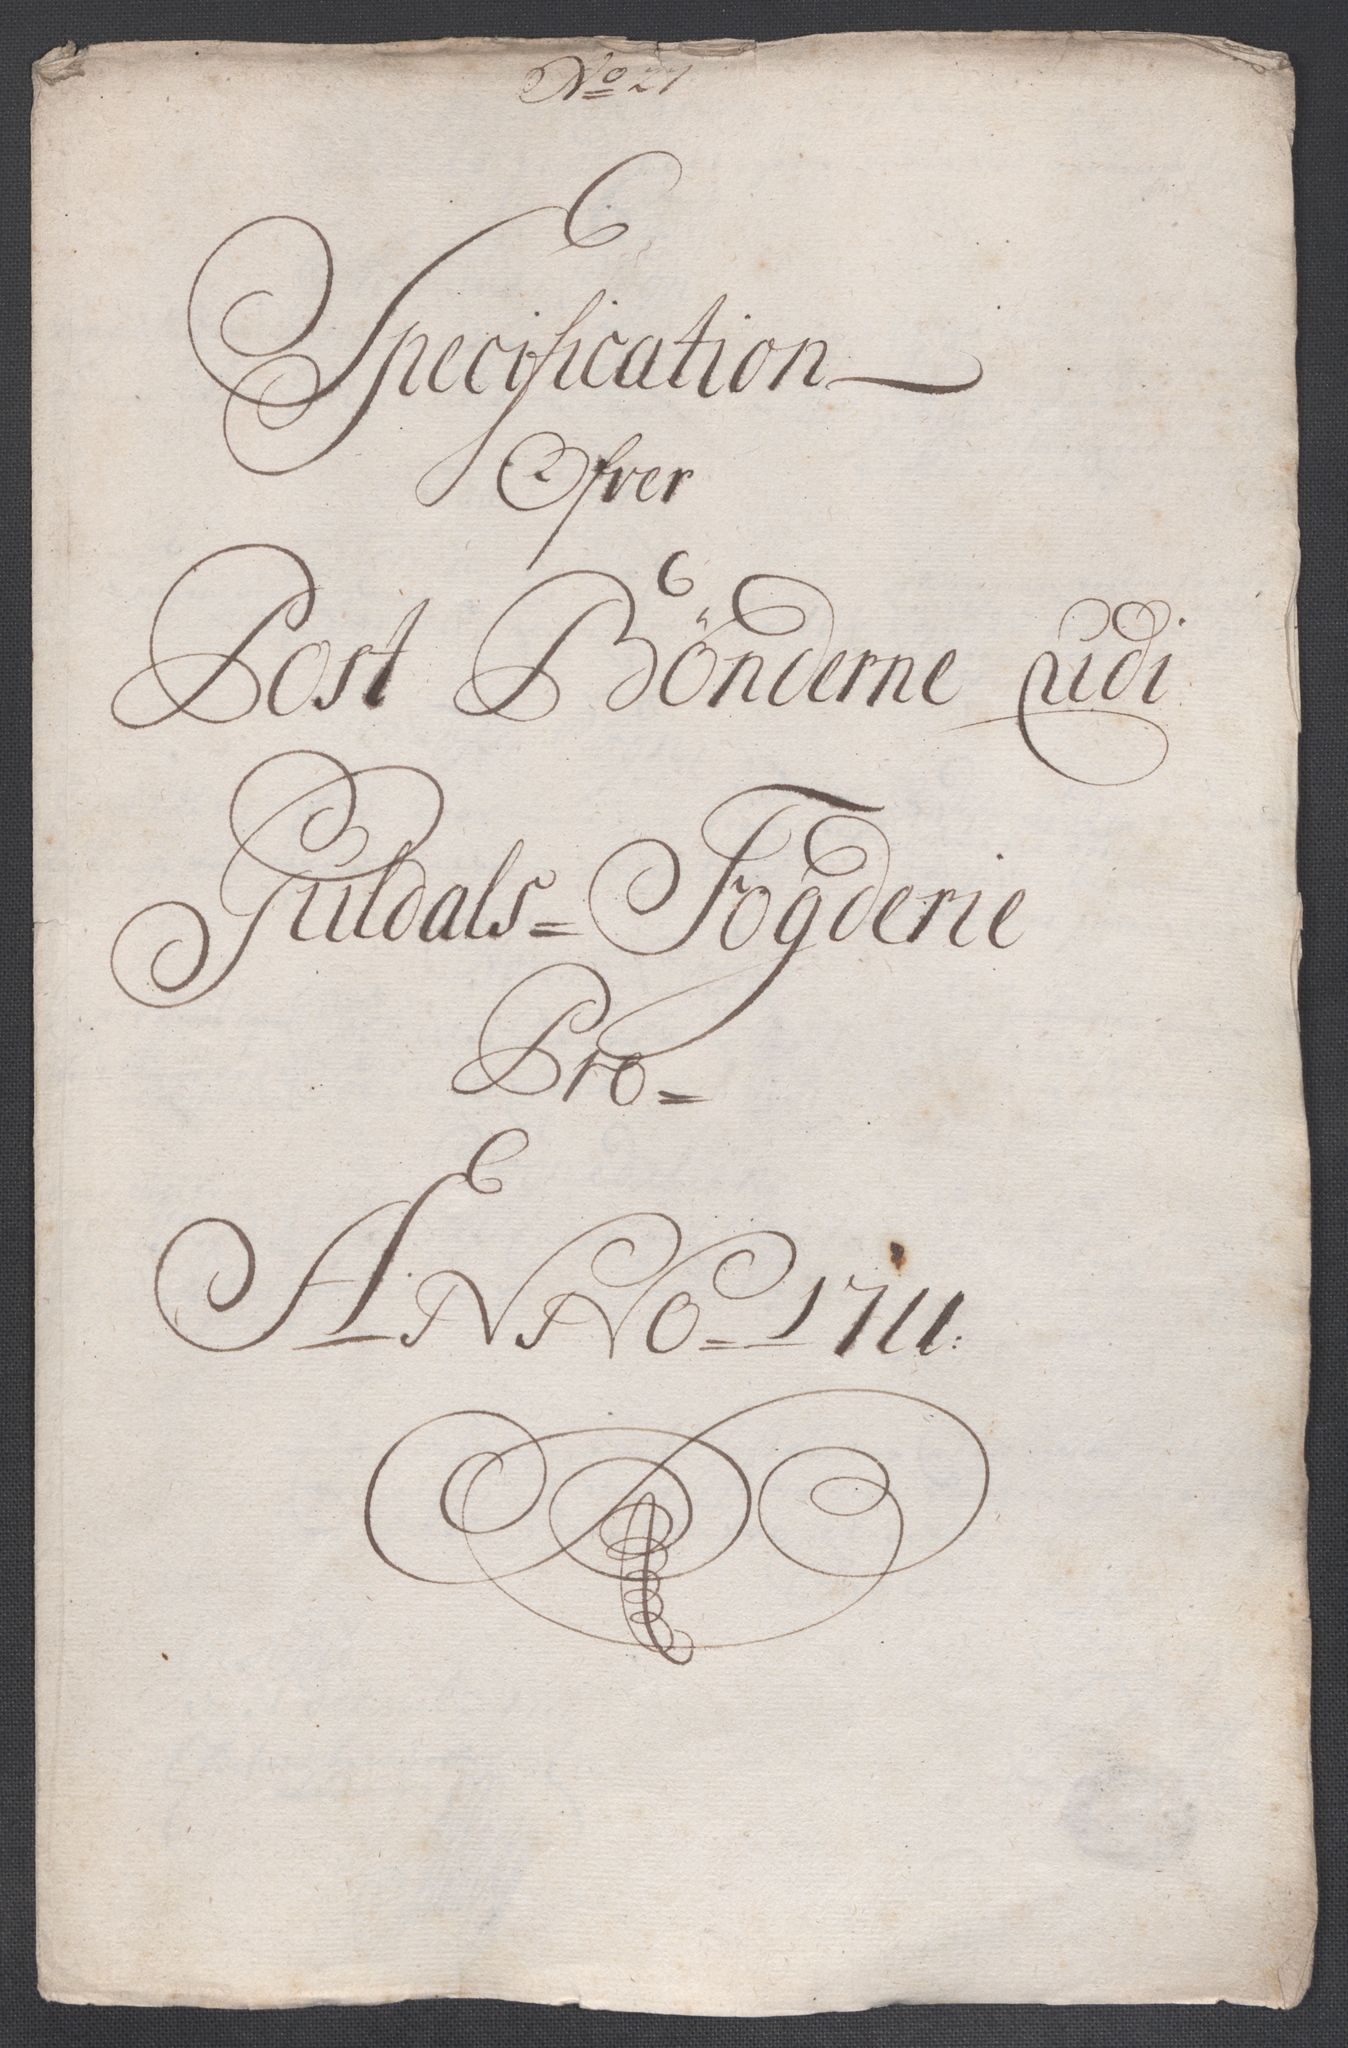 No 27
Specification
Ofver
Post Bönderne udi
Guldals = Fogderie
Pro =
ANNO = 1711: